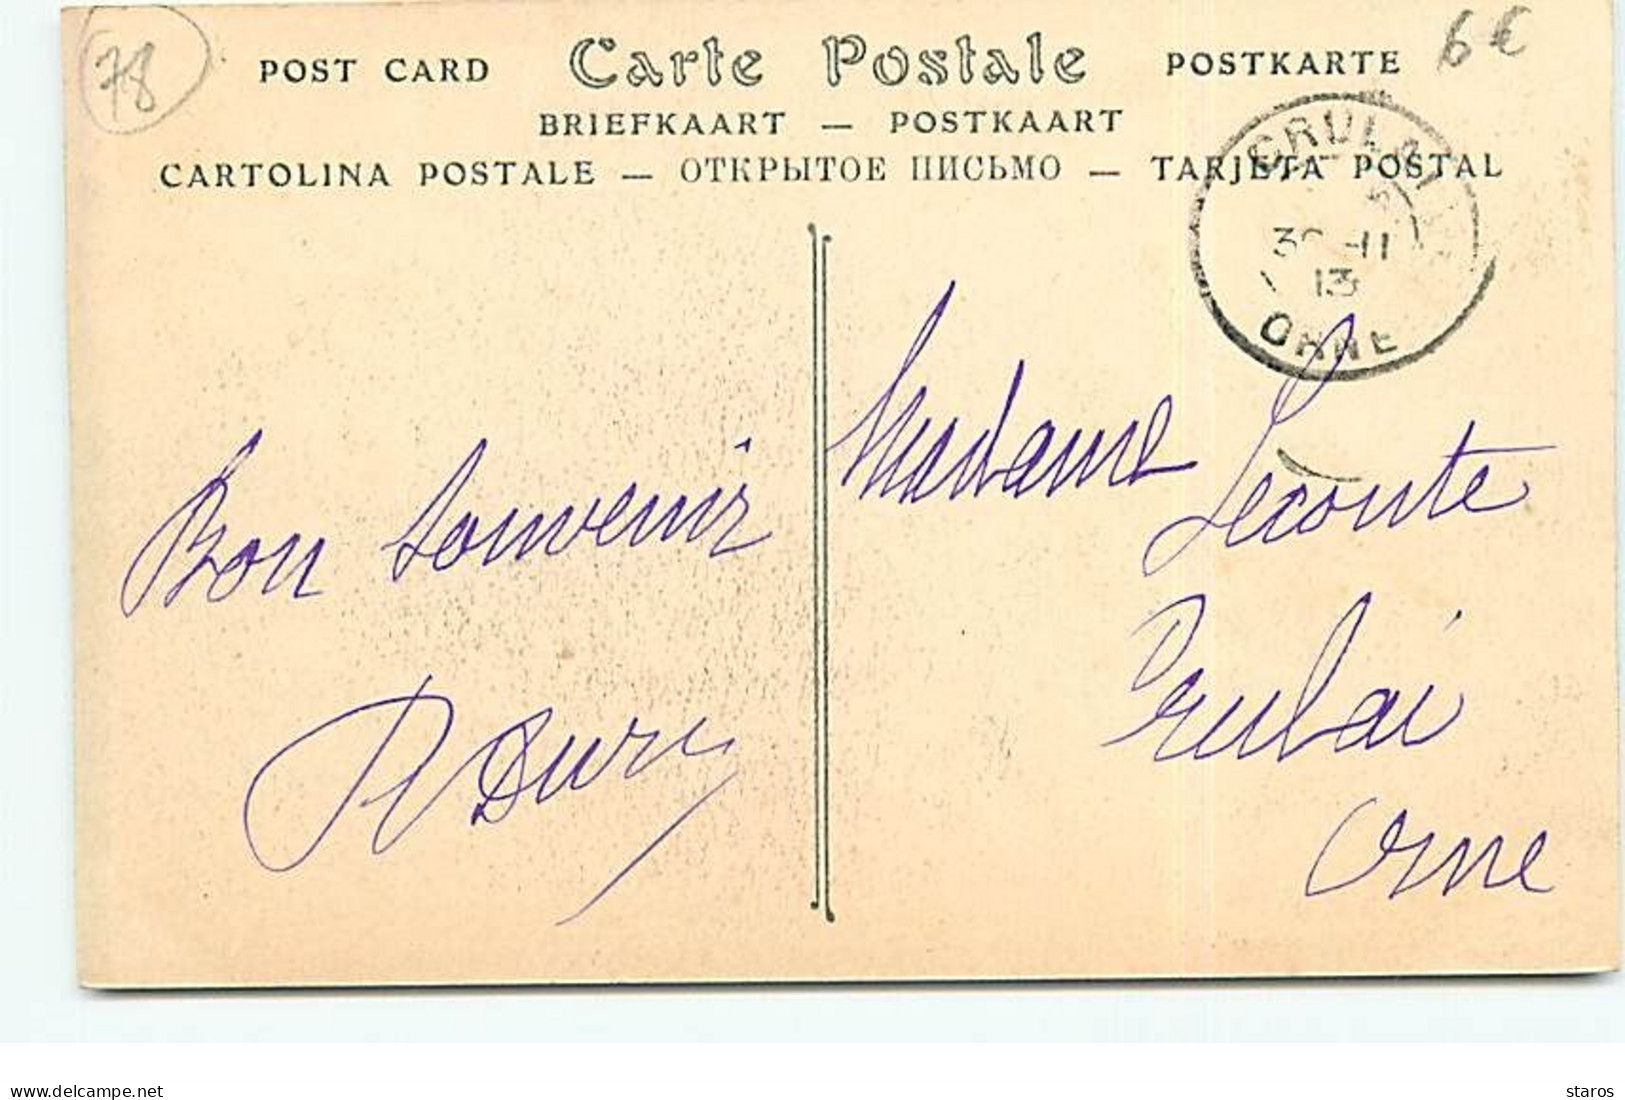 78
6 €
POST CARD Carte Postale POSTKARTE
BRIEFKAART — POSTKAART
CARTOLINA POSTALE — ОТКРЫТОЕ ПИСЬМО — TARJETA POSTAL
CRULAI
30 -11
13
ORNE
Bon souvenir
Madame
Leconte
Crulai
Orne
www.delcampe.net
staros